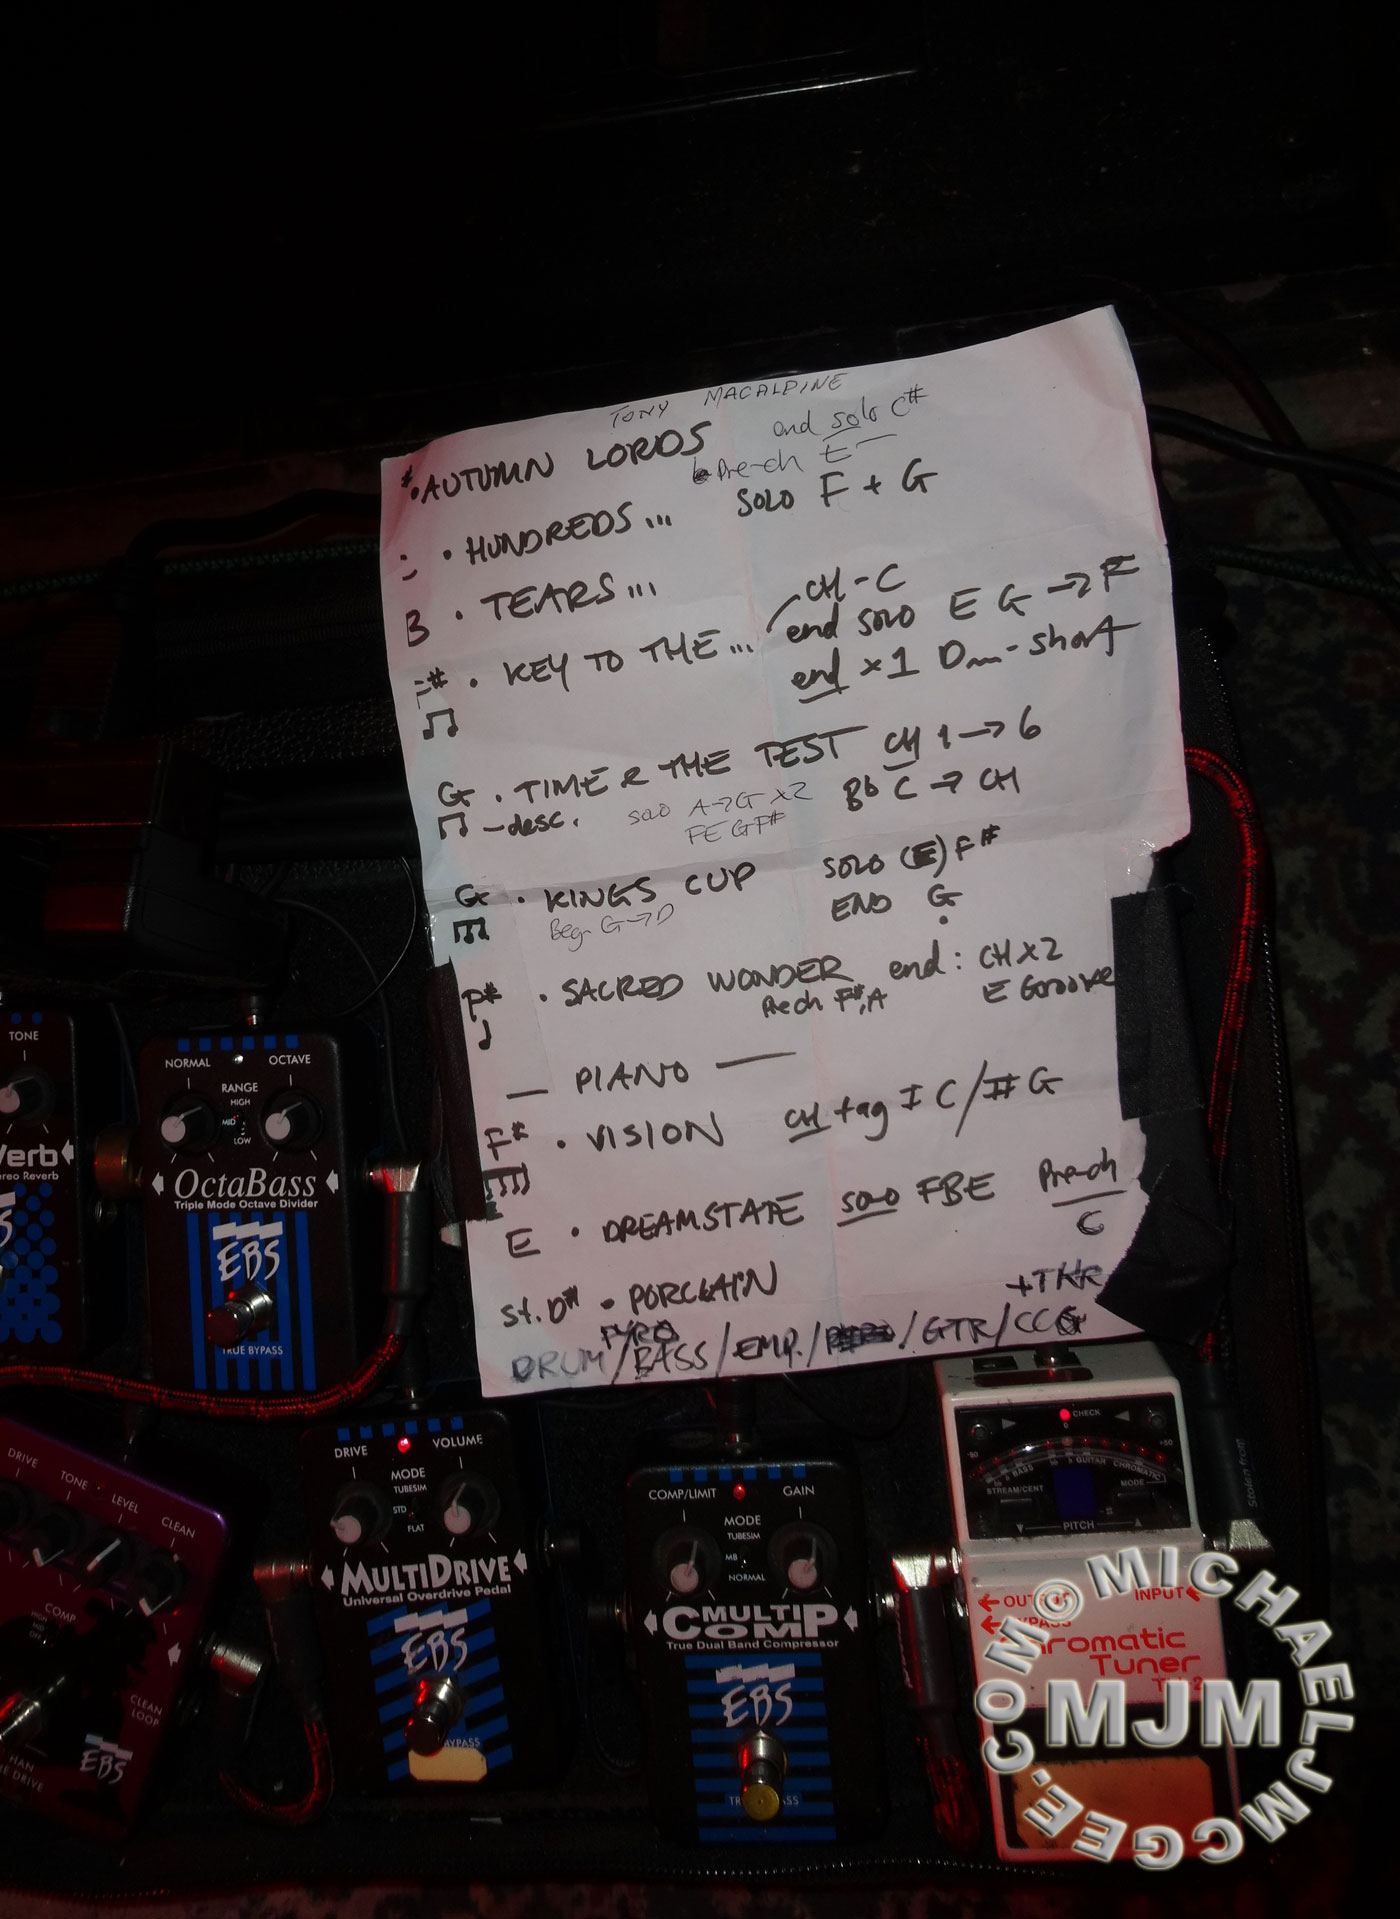 TONY MACALPINE
#. AUTUMN LORDS end solo C#
Pre-ch E
• HUNDREDS... SOLO F + G
B • TEARS...
CH - C
• KEY TO THE... end solo E G → F
end x1 Dm - short
G • TIME & THE TEST CH 1 → 6
- desc. solo A→G x2 Bb C → CH
FE GF#
G • KINGS CUP SOLO (E) F#
Beg. G→D END G
F# • SACRED WONDER end: CH X2
Prech F#, A E Groove
— PIANO —
F# • VISION CH tag I C/II G
E • DREAMSTATE solo FBE Pre-ch
C
St. D# • PORCLAIN +TKR
PYRO
DRUM/BASS/EMP./ /GTR/CC
TONE
Verb
ereo Reverb
NORMAL OCTAVE
RANGE
HIGH
MID
LOW
OctaBass
Triple Mode Octave Divider
EBS
TRUE BYPASS
DRIVE TONE LEVEL CLEAN
COMP
HIGH
MID
OFF
CLEAN
LOOP
HAN
E DRIVE
EBS
DRIVE VOLUME
MODE
TUBESIM
STD
FLAT
MULTIDRIVE
Universal Overdrive Pedal
EBS
BYPASS
COMP/LIMIT GAIN
MODE
TUBESIM
MB
NORMAL
MULTI COMP
True Dual Band Compressor
EBS
TR ASS
CHECK
-50 +50
BASS GUITAR CHROMATIC
STREAM/CENT MODE
PITCH
OUTPUT INPUT
BYPASS
Chromatic
Tuner
Stolen from
© MICHAELJMCGEE.COM
MJM